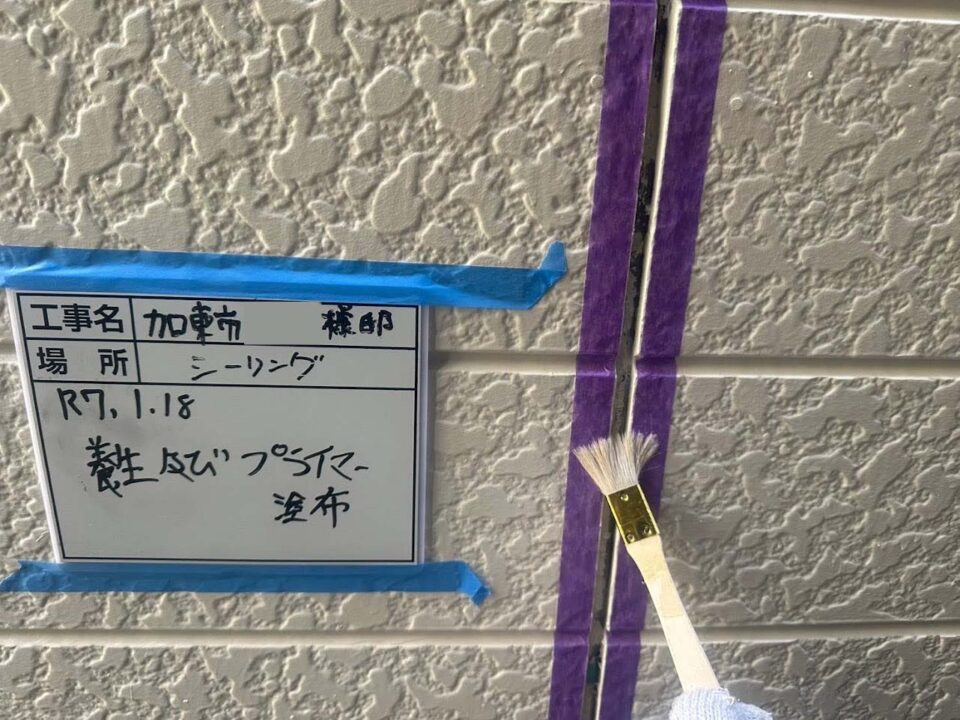 工事名 加東市 様邸
場所 シーリング
R7.1.18
養生及びプライマー
塗布